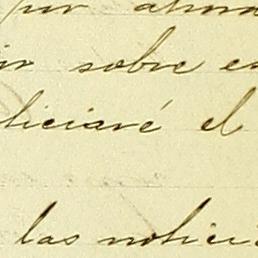 por ahora
ir sobre es
liciaré el
las notici